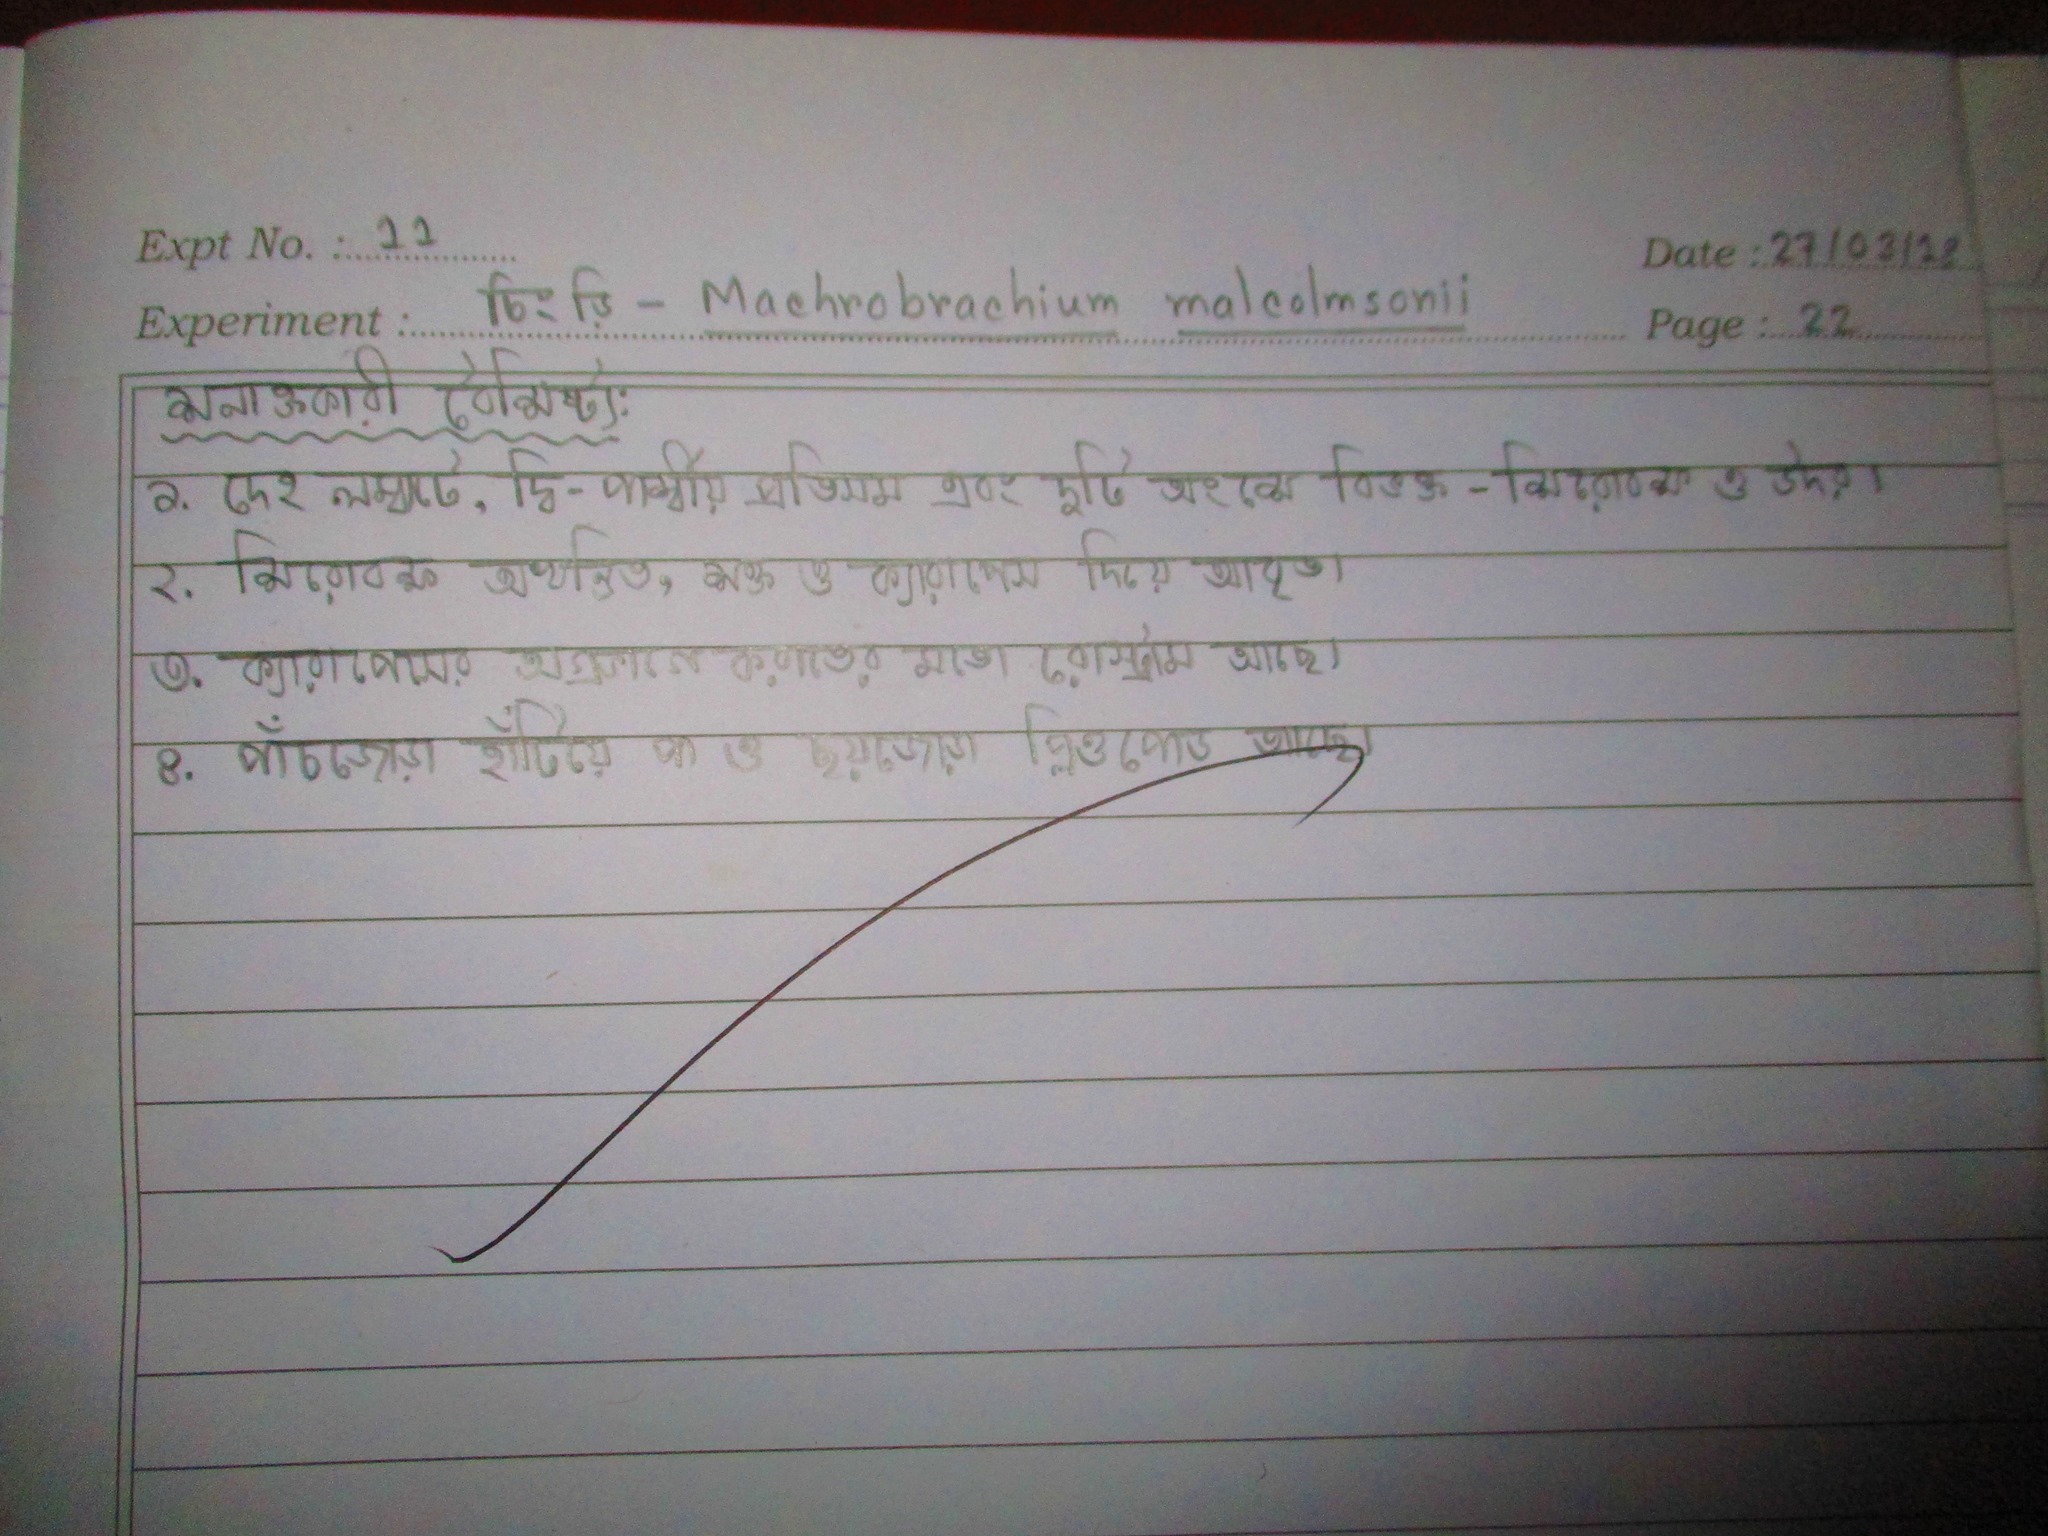 Expt No. : 11
Date : 27/03/18
Experiment : চিংড়ি - Machrobrachium malcolmsonii
Page : 22
শনাক্তকারী বৈশিষ্ট্য:
১. দেহ লম্বাটে, দ্বি-পার্শ্বীয় প্রতিসম এবং দুটি অংশে বিভক্ত - শিরোবক্ষ ও উদর।
২. শিরোবক্ষ অখন্ডিত, শক্ত ও ক্যারাপেস দিয়ে আবৃত।
৩. ক্যারাপেসের করাতের মতো রোস্ট্রাম আছে।
৪. পাঁচজোড়া হাঁটিয়ে পা ও ছয়জোড়া প্লিওপোড আছে।